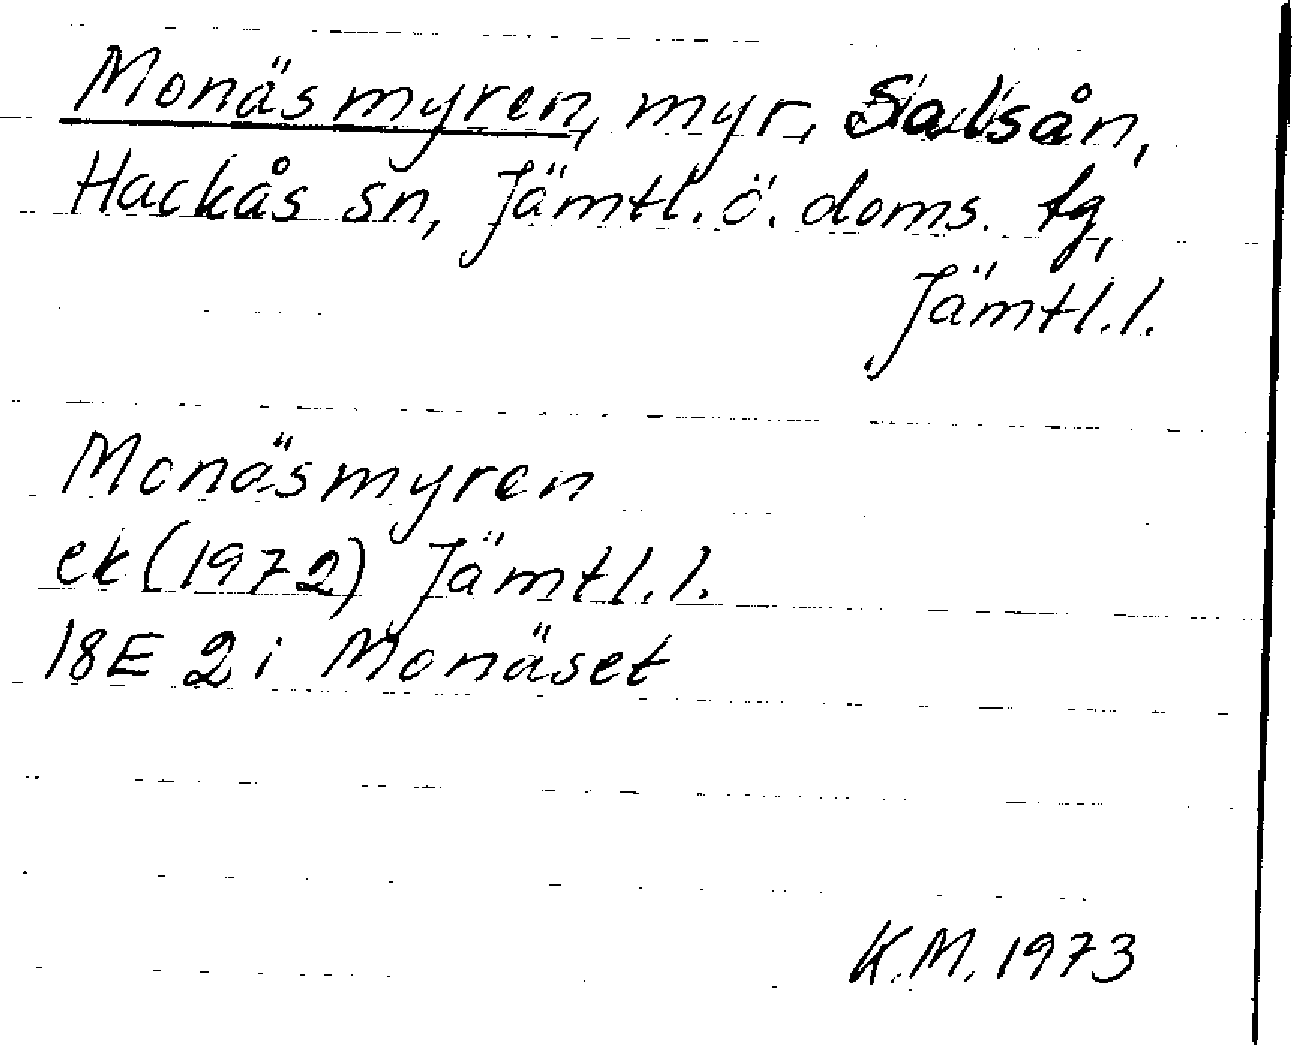 Monäsmyren, myr, Salsån,
Hackås sn, Jämtl. ö. doms. tg,
Jämtl. l.
Monäsmyren
ek (1972) Jämtl. l.
18E 2i Monäset
K.M. 1973